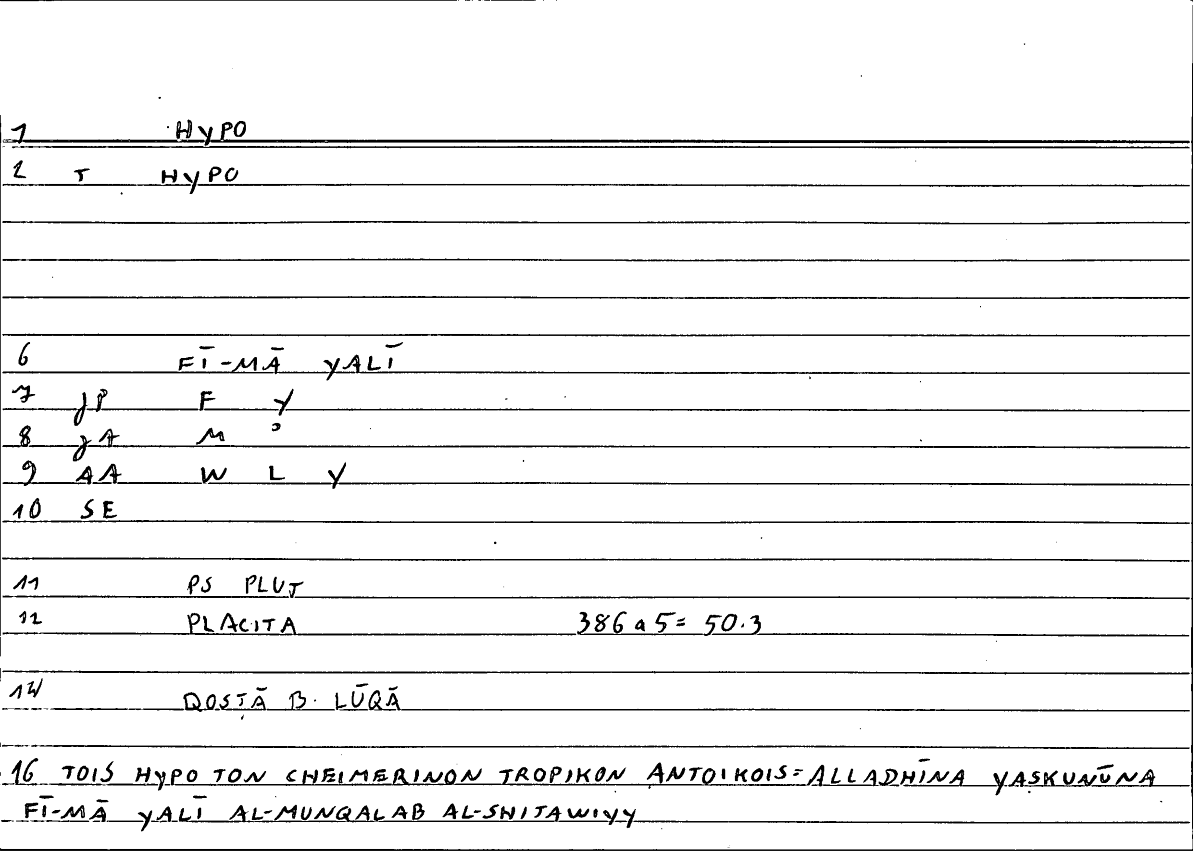 1 HYPO
2 T HYPO
6 FĪ-MĀ YALĪ
7 JP F Y
8 JA M ʾ
9 AA W L Y
10 SE
11 PS PLUT
12 PLACITA 386 a 5 = 50.3
14 QOSṬĀ B. LŪQĀ
16 TOIS HYPO TON CHEIMERINON TROPIKON ANTOIKOIS = ALLADHĪNA YASKUNŪNA
FĪ-MĀ YALĪ AL-MUNQALAB AL-SHITAWIYY